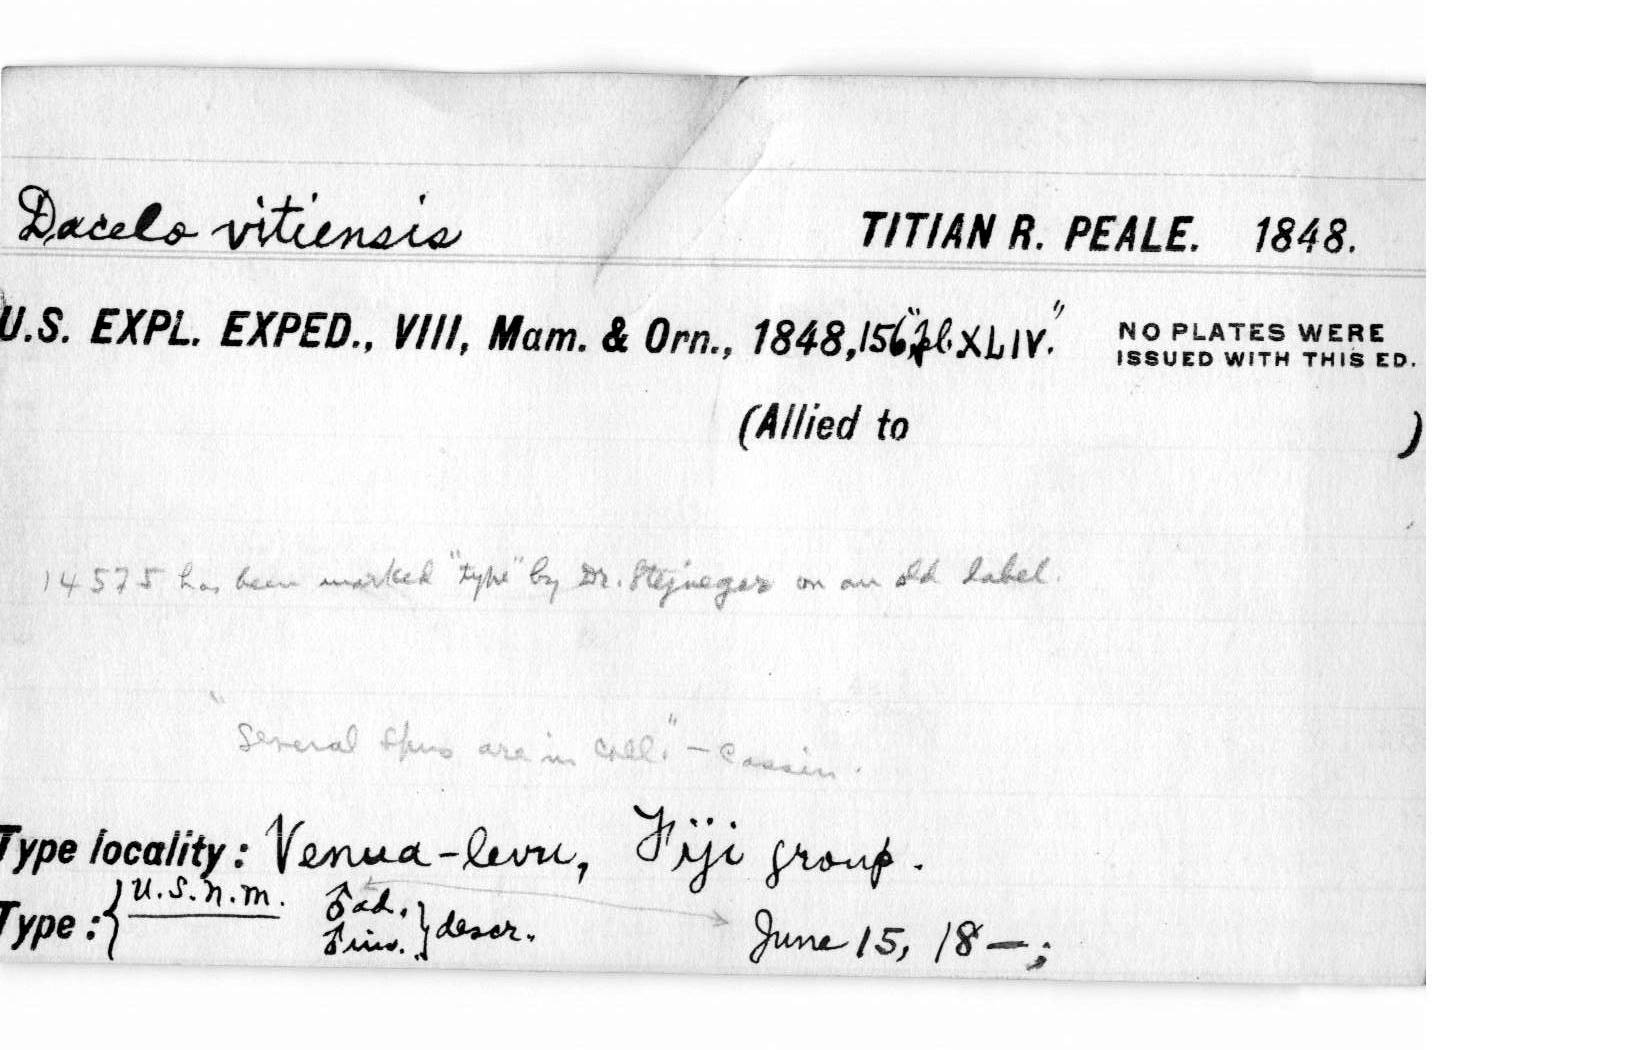 Dacelo vitiensis TITIAN R. PEALE. 1848.
U.S. EXPL. EXPED., VIII, Mam. & Orn., 1848, 156, "pl. XLIV." NO PLATES WERE
ISSUED WITH THIS ED.
(Allied to )
14575 has been marked "type" by Dr. Stejneger on an old label.
"Several spms are in coll." — Cassin.
Type locality: Venua-levu, Fiji group.
Type: { U.S.N.M. ♂ ad. } descr. June 15, 18—;
♂ im.